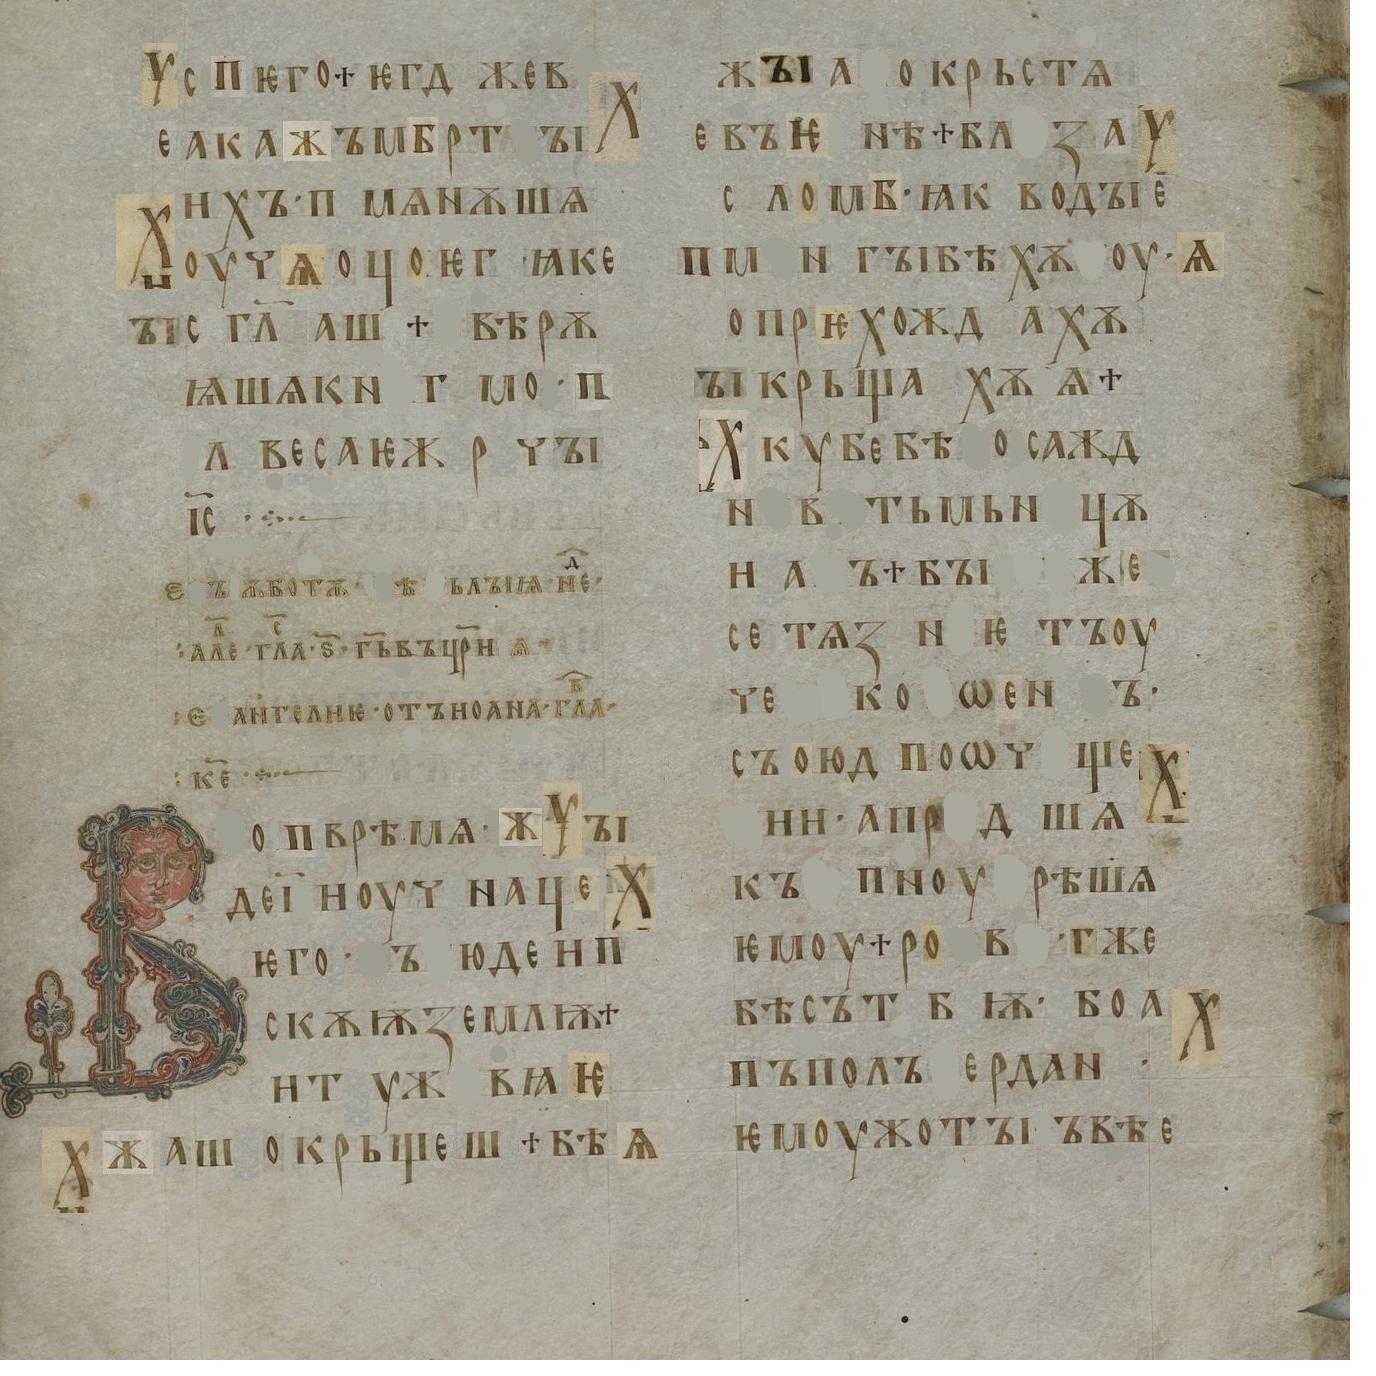 Ѵс пѥго+ ѥгд жев
еакажъмбрт ъіХ
нхъ·п мѧнѫшѧ
Хоѵүѧоцоѥг ·ꙗке
ъіс гл҃ аш + вѣрѫ
ѩшѧкн г мо·п
л весаѥж р үъі
і҃с
е ъ ѫботѫ· ѣ ълъіѩ·не·
:але·гла·ѕ·гь҃въцр҃н ѧ·
:е ангелиѥ·отъиоана·гла·
:ке҃·
о пврѣмѧ·жѴъі
деі҃ ноуү нацеХ
ѥго· ъ юденп
скѫѭземлѭ+
нт ѵж вꙗѥ
Хжаш окрьщеш +бѣѧ
жъіа окрьстѧ
евъѥ нѣ+вл заѴ
с ломб·ꙗк водъіе
пм н гъібѣхѫ оу·ѧ
опрѥхожд ахѫ
ъікрьща хѫ ѧ+
Хкѵбебѣ осажд
н в тьмьн цѫ
н а ъ+бъі же
се тѧз н ѥ тъоу
үе ко ѡен ъ·
съоюд поѡү щеХ
нн·апр д шѧ
къ пноу рѣшѧ
ѥмоу+ро в ·гже
бѣсът б ѭ· боаХ
пъполъ ердан ·
ѥмоужотъі ъвѣе